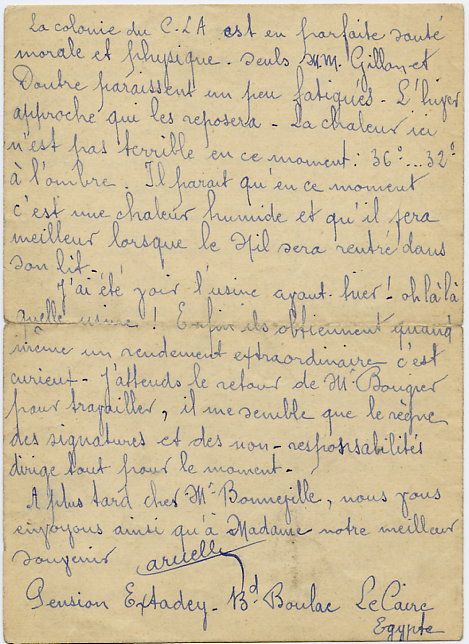 La colonie du C.LA est en parfaite santé
morale et physique. seuls MM. Gillon et
Doutre paraissent un peu fatigués - L'hiver
approche qui les reposera - La chaleur ici
n'est pas terrible en ce moment : 36°...32°
à l'ombre. Il parait qu'en ce moment
c'est une chaleur humide et qu'il fera
meilleur lorsque le Nil sera rentré dans
son lit -
J'ai été voir l'usine avant hier ! oh là là
quelle usine ! Enfin ils obtiennent quand
même un rendement extraordinaire c'est
curieux - J'attends le retour de Mr Bouyer
pour travailler, il me semble que le règne
des signatures et des non-responsabilités
dirige tout pour le moment -
A plus tard cher Mr Bonnefille, nous vous
envoyons ainsi qu'à Madame notre meilleur
souvenir
Pension Bd Boulac Le Caire
Egypte